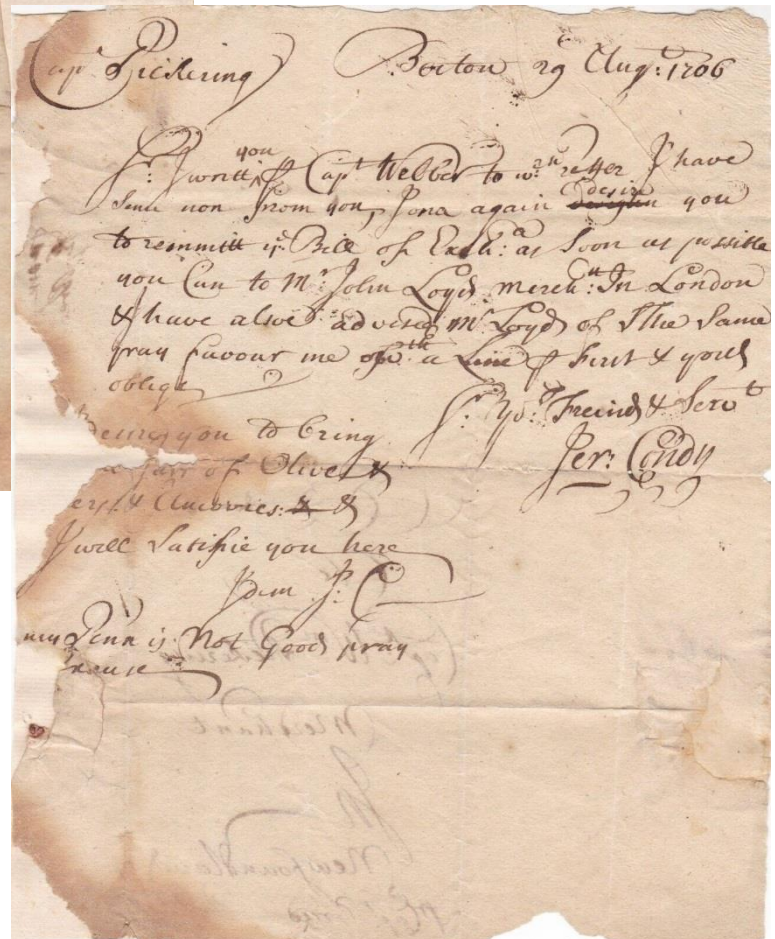 Cap.t Pickering Boston 29 Aug: 1706
Sr. I writt you p Capt Welber to wch reffer I have
non from you, I ona again desire you
to remmitt ye Bill of Exch:a as Soon as possible
you Can to Mr. John Loyd merch:tt In London
& have alsoe advised Mr. Loyd of The Same
pray favour me a Line p First & youl
oblige
Sr. Yor. Freind & Servt
Jer: Condy
you to bring
a Jarr of Olives &
& Anchovies: &
I will Satisfie you here
Idem J: C
my Penn is Not Good pray
Merchant
In
Newfoundland